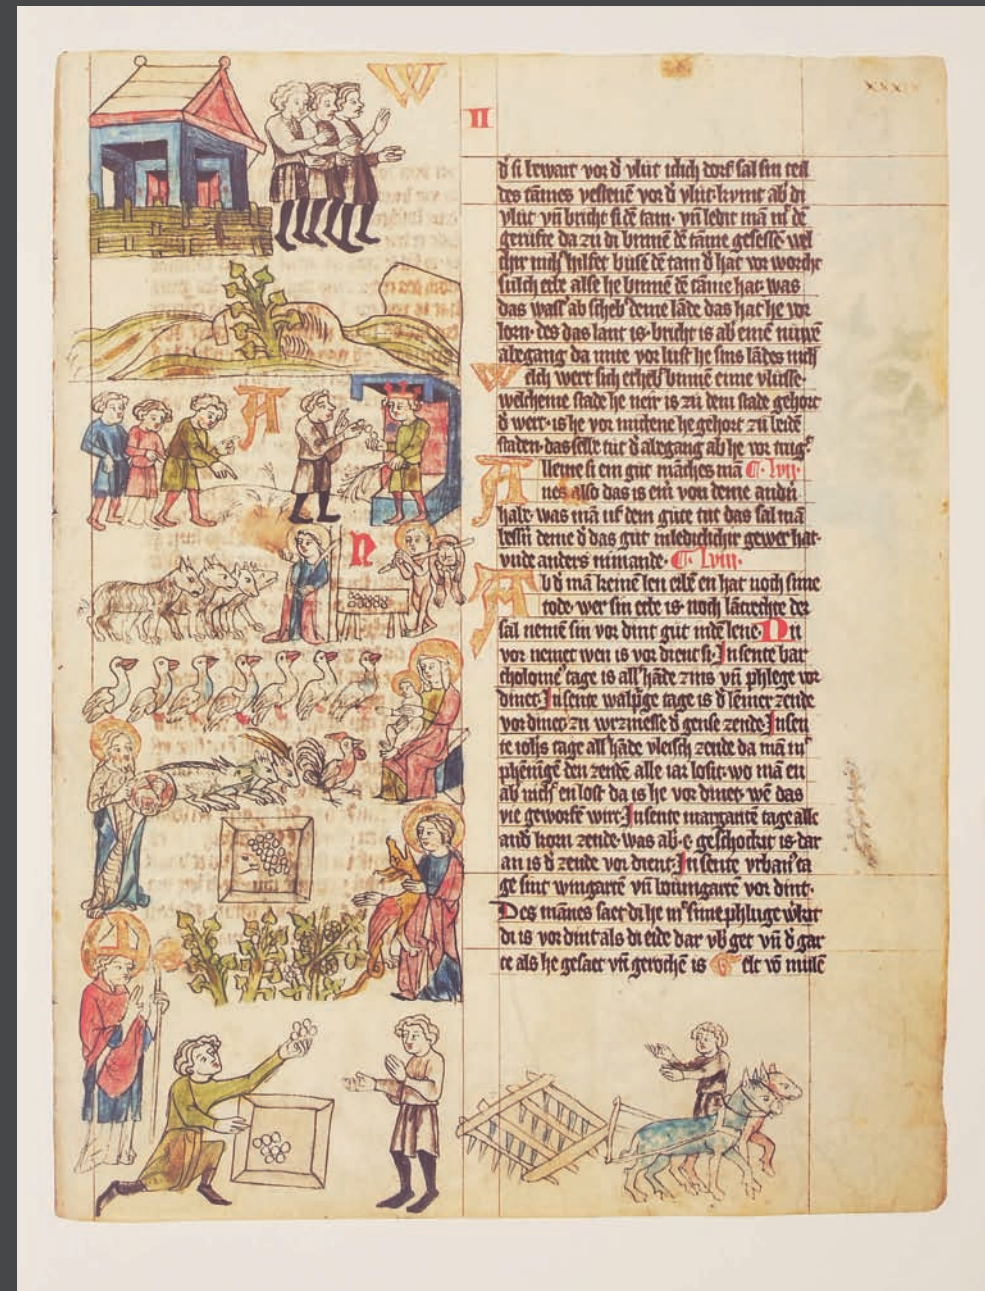 W
II
d̕ si bewart vor d̕ vlut iclich dorf sal sin teil
des tāmes vestenē vor d̕ vlut kvmt ab̕ di
vlut vn̄ bricht si dē tam vn̄ ledit mā uf dē
gerufte da zu di binnē dē tāme gesessē wel
chir nich hilfet buse dē tam d̕ hat vor worcht
sulch erbe alse he binnē dē tāme hat was
das wass̕ ab scheb̕ deme lāde das hat he vor
lorn des das lant is bricht is ab̕ einē nuwē
abegang da mite vor lust he sins lādes nich
Welch wert sich erheb̕ binnē eime vlusse
welcheme stade he neir is zu dem stade gehort
d̕ wert is he vor mittene he gehort zu beidē
staden das selbe tut d̕ abegang ab he vor trug̕
Alleine si ein gut māches mā C lvii
nes also das is ein̕ von deme andn̄
habe was mā uf dem gute tut das sal mā
bessn̄ deme d̕ das gut inledichlichir gewer hat
vnde anders nimande C lviii
Ab d̕ mā keinē len erbē en hat noch sime
tode wer sin erbe is noch lātrechte der
sal nemē sin vor dint gut indē lene Nu
vor nemet wen is vor dient si In sente bar
tholomē tage is all̕ hāde zins vn̄ phlege vor
dinet In sente walp̕ge tage is d̕ lēmer zende
vor dinet zu worzmesse d̕ gense zende In sen
te iohs tage all̕ hāde vleisch zende da mā in̕
phēnigē den zendē alle iar losit wo mā en
ab̕ nich en lost da is he vor dinet wē das
vie geworfē wirt In sente margarete tage alle
and̕ korn zende was ab̕ e geschockit is dar
an is d̕ zende vor dient In sente vrban̕ ta
ge sint wingartē vn̄ boumgartē vor dint
Des mānes saet di he m̕ sime phluge w̕kit
di is vor dint als di eide dar vb̕ get vn̄ d̕ gar
te als he gesaet vn̄ gerochē is Gelt vō mule
A
N